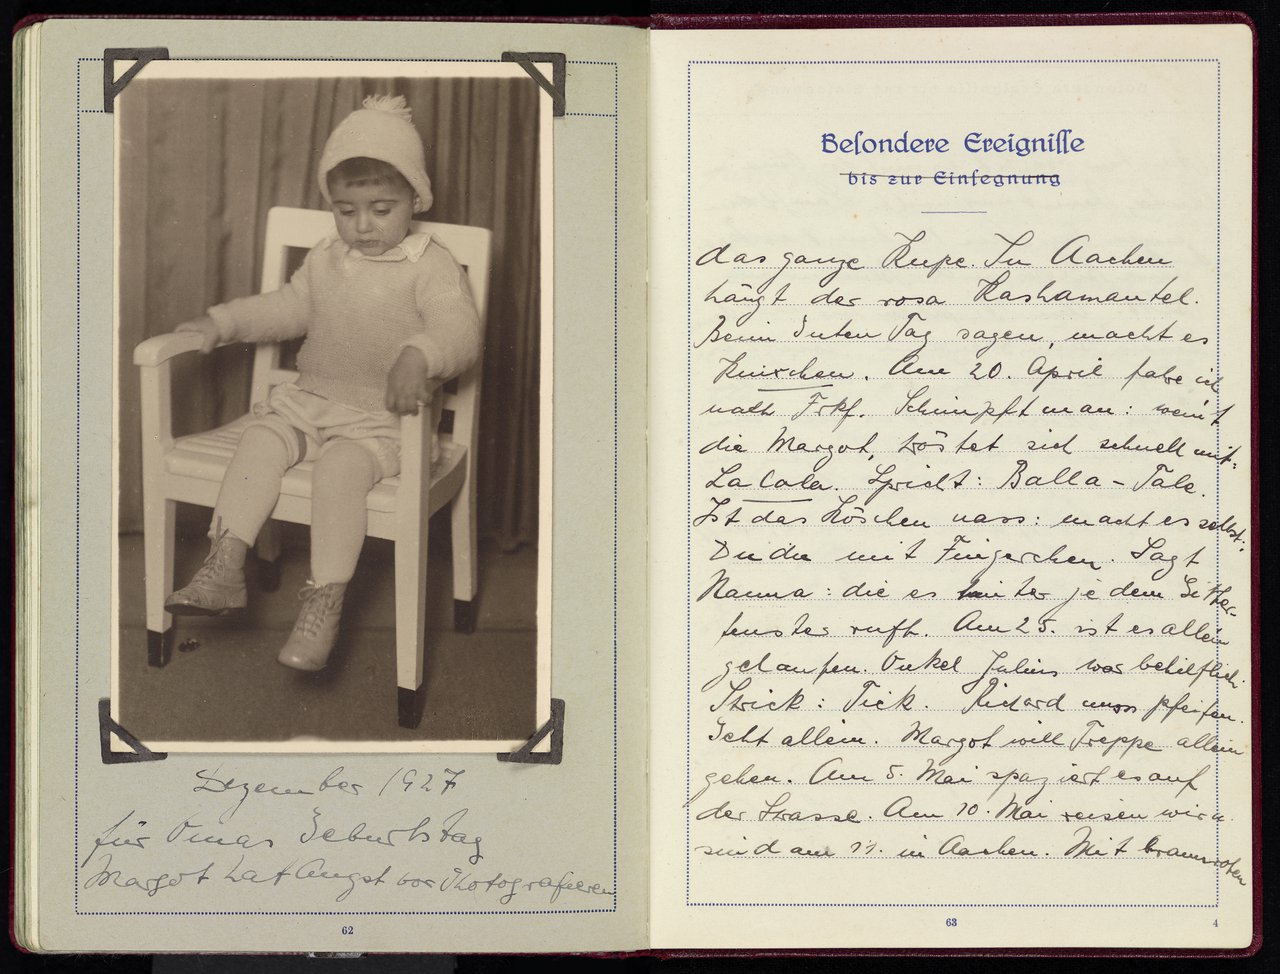 Dezember 1927
für Omas Geburtstag
Margot hat Angst vor Photografieren
62
Besondere Ereignisse
bis zur Einsegnung
das ganze In Aachen
hängt der rosa Kashamantel.
Beim Guten Tag sagen, macht es
Knixchen. Am 20. April fahre ich
nach Frkf. Schimpft man: weint
die Margot, tröstet sich schnell mit:
La lala. Spricht: Balla - Tale.
Ist das Höschen nass: macht es selbst:
Du du mit Fingerchen. Sagt
Mamma: die es hinter je dem Gitter-
fenster ruft. Am 25. ist es allein
gelaufen. Onkel Julius war behilflich.
Strick: Tick. Richard muss pfeifen.
Geht allein. Margot will Treppe allein
gehen. Am 5. Mai spaziert es auf
der Strasse. Am 10. Mai reisen wir u.
sind am 11. in Aachen. Mit braunroten
63
4